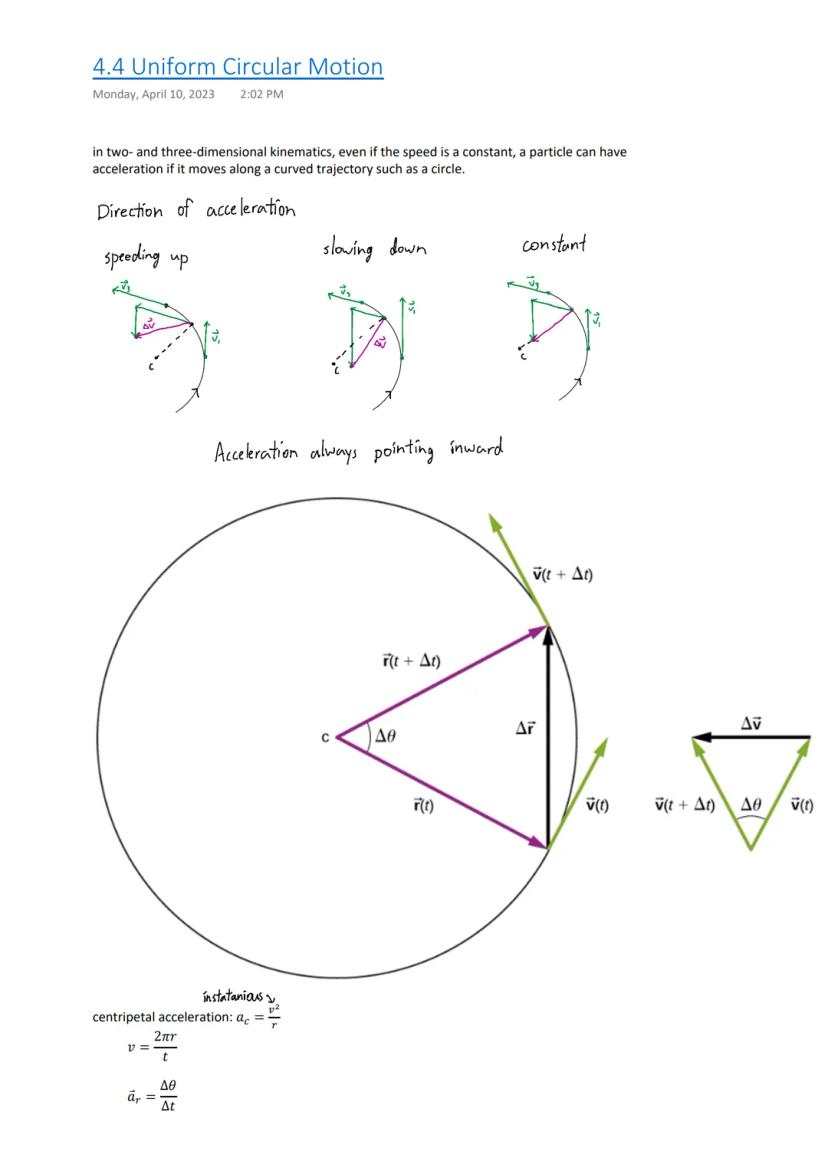 4.4 Uniform Circular Motion
Monday, April 10, 2023 2:02 PM
in two- and three-dimensional kinematics, even if the speed is a constant, a particle can have
acceleration if it moves along a curved trajectory such as a circle.
Direction of acceleration
speeding up
slowing down
constant
v⃗₃
Δv⃗
v⃗₁
c
v⃗₃
v⃗₁
Δv⃗
c
v⃗₃
v⃗₁
c
Acceleration always pointing inward
v⃗(t + Δt)
r⃗(t + Δt)
Δr⃗
Δv⃗
C
Δθ
r⃗(t)
v⃗(t)
v⃗(t + Δt)
Δθ
v⃗(t)
instatanious
centripetal acceleration: a_c = v²/r
v = 2πr/t
a⃗_r = Δθ/Δt